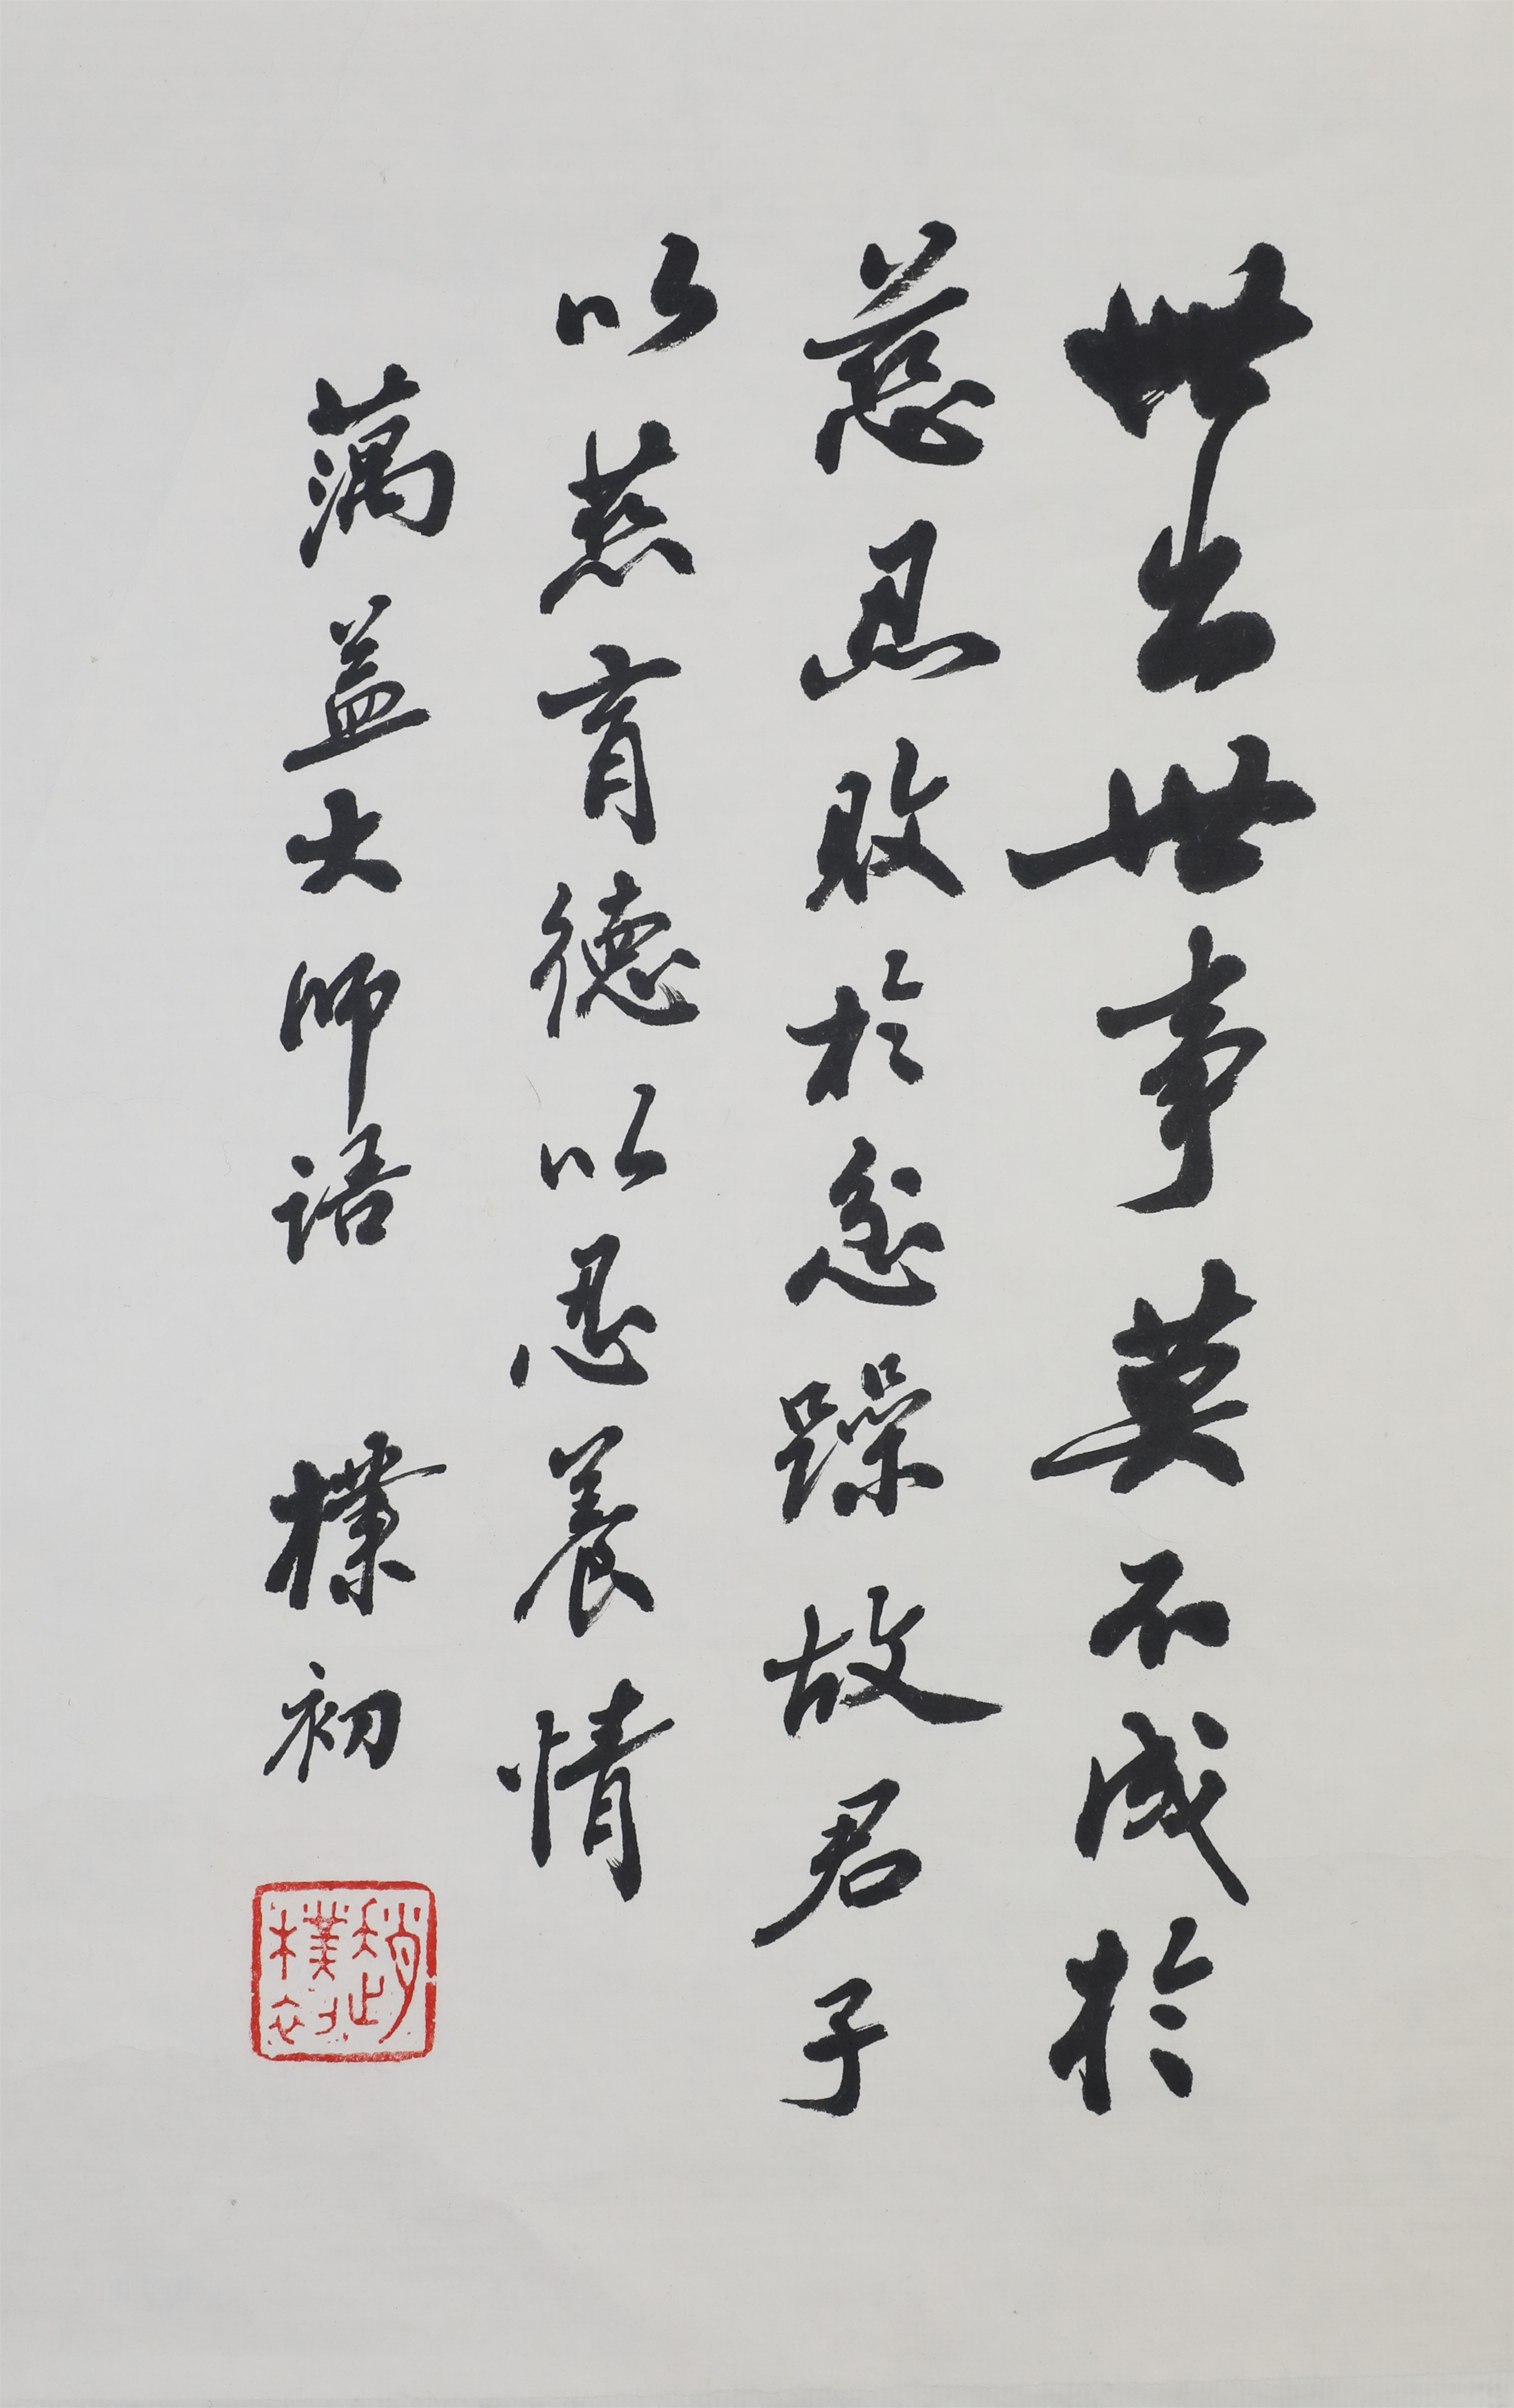 世出世事莫不成於
慈忍敗於忿躁故君子
以慈育德以忍養情
蕅益大師語 樸初
趙樸初